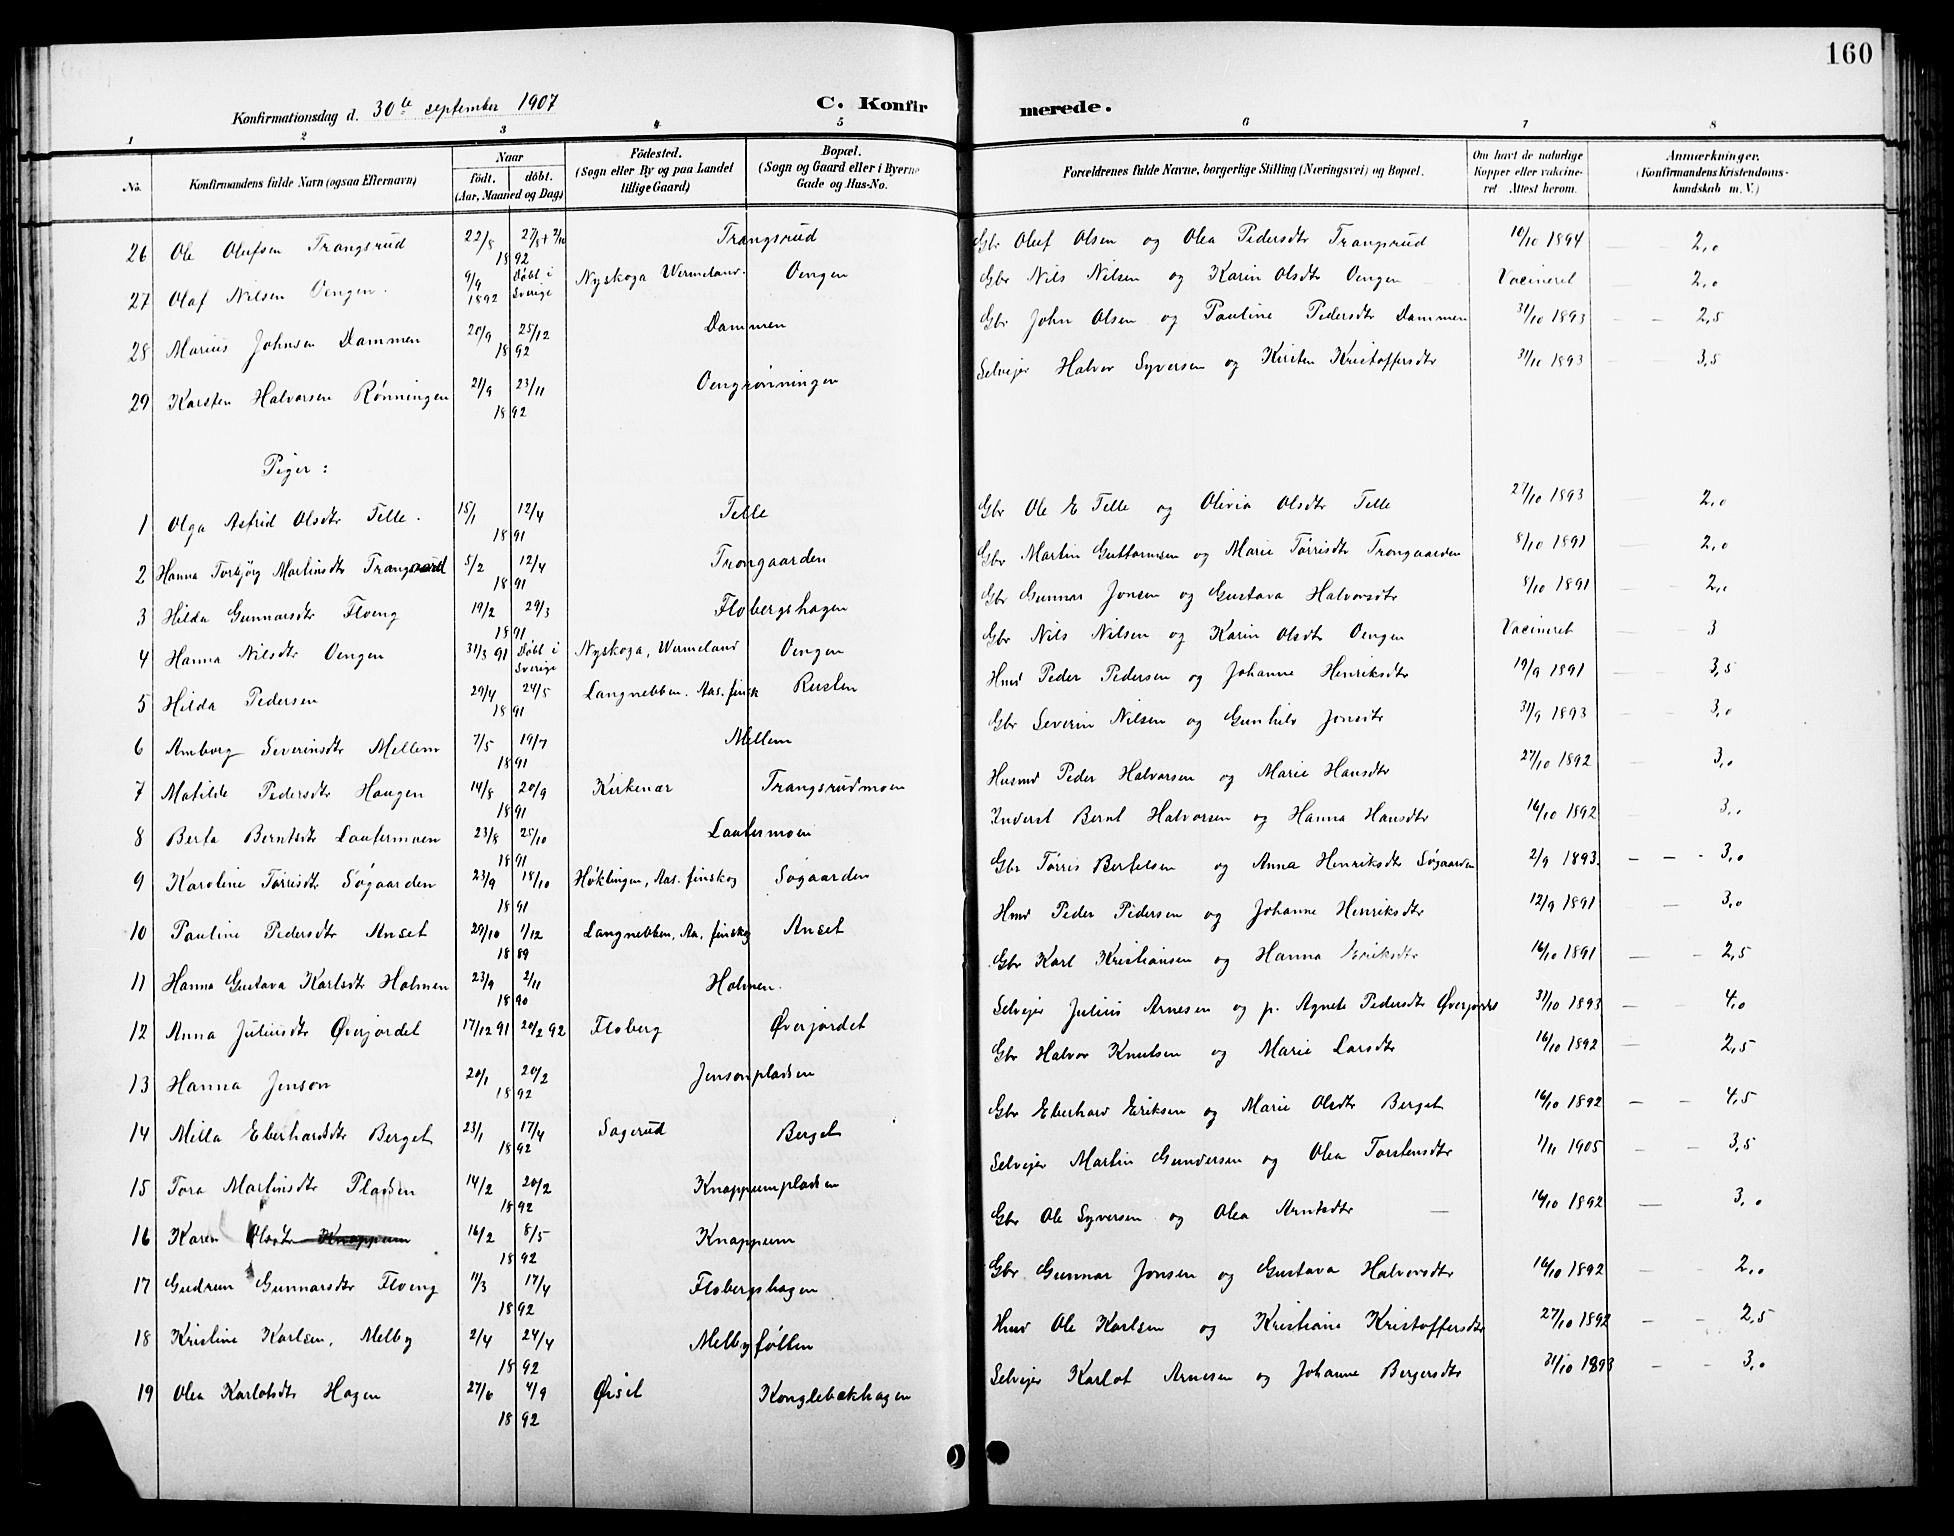 160
Konfirmationsdag d. 30te september 1907 C. Konfirmerede.
1 2 3 4 5 6 7 8
No. Konfirmandens fulde Navn (ogsaa Efternavn) Naar født. døbt. (Aar, Maaned og Dag) Födested. (Sogn eller By og paa Landet tillige Gaard) Bopæl. (Sogn og Gaard eller i Byerne Gade og Hus-No. Forældrenes fulde Navne, borgerlige Stilling (Næringsvei) og Bopæl. Om havt de naturlige Kopper eller vakcineret Attest herom. Anmærkninger. (Konfirmandens Kristendomskundskab m. V.)
26 Ole Olufsen Trangsrud 22/8 27/8 + 2/10 1892 Trangsrud Gbr Oluf Olsen og Olea Pedersdtr Trangsrud 10/10 1894 — 2,0
27 Olaf Nilsen Oengen. 9/9 1892 Døbt i Sverige Nyskoga Wermeland. Oengen Gbr Nils Nilsen og Karin Olsdtr Oengen Vacineret — 2,0
28 Marius Johnsen Dammen 20/9 25/12 1892 Dammen Gbr John Olsen og Pauline Pedersdtr Dammen 31/10 1893 — — 2,5
29 Karsten Halvorsen Rønningen 21/9 23/11 1892 Oengrønningen Selvejer Halvor Syversen og Kirsten Kristoffersdtr 31/10 1893 — — 3,5
Piger:
1 Olga Astrid Olsdtr Telle. 15/1 12/4 1891 Telle Gbr Ole E Telle og Olivia Olsdtr Telle 27/10 1893 — 2,0
2 Hanna Torbjørg Martinsdtr 5/2 12/4 1891 Trongaarden Gbr Martin Guttormsen og Marie Tørrisdtr Trongaarden 8/10 1891 — 2,0
3 Hilda Gunnarsdtr Floeng 19/2 29/3 1891 Flobergshagen Gbr Gunnar Jonsen og Gustava Halvorsdtr 8/10 1891 — 2,0
4 Hanna Nilsdtr Oengen 31/3 91 Døbt i Sverige Nyskoga, Wermeland Oengen Gbr Nils Nilsen og Karin Olsdtr Oengen Vacineret — 3
5 Hilda Pedersen 29/4 24/5 1891 Langnebben. Aas. finsk Rusten Hmd Peder Pedersen og Johanne Henriksdtr 19/9 1891 — — 3,5
6 Amborg Severinsdtr Mellem 7/5 19/7 1891 Mellem Gbr Severin Nilsen og Gunhild Jonsdtr 31/9 1893 — 3,0
7 Matilde Pedersdtr Haugen 14/8 20/9 1891 Kirkenær Trangsrudmoen Husmd Peder Halvorsen og Marie Hansdtr 27/10 1892 — 3,0
8 Berta Berntsdtr Lautermoen 23/8 25/10 1891 Lautermoen Inderst Bernt Halvorsen og Hanna Hansdtr 16/10 1892 — 3,0
9 Karoline Tørrisdtr Søgaarden 23/9 18/10 1891 Høklingen, Aas. finskog Søgaarden Gbr Tørris Bertelsen og Anna Henriksdtr Søgaarden 2/9 1893. — — - 3,0
10 Pauline Pedersdtr Anset 29/10 1/12 1889 Langnebben, Aa. finskog Anset Hmd Peder Pedersen og Johanne Henriksdtr 12/9 1891 — 3,0
11 Hanna Gustava Karlsdtr Holmen 23/9 2/11 1890 Holmen. Gbr Karl Kristiansen og Hanna Eriksdtr 16/10 1891 — — 2,5
12 Anna Juliusdtr Øverjordet 17/12 91 20/2 92 Floberg Øverjordet Selvejer Julius Arnesen og p. Agnete Pedersdtr Øverjordet 31/10 1893 — - 4,0
13 Hanna Jenson 20/1 20/2 1892 Jensonpladsen Gbr Halvor Knutsen og Marie Larsdtr 16/10 1892 — 2,5
14 Milla Eberhardsdtr Berget 23/1 17/4 1892 Sagerud Berget Gbr Eberhard Eriksen og Marie Olsdtr Berget 16/10 1892 — — 4,5
15 Tora Martinsdtr Pladsen 14/2 20/2 1892 Knappumpladsen Selvejer Martin Gundersen og Olea Torstensdtr 1/11 1905 — — 3,5
16 Karen Olsdtr Knappum 16/2 8/5 1892 Knappum Gbr Ole Syversen og Olea Arntsdtr — 16/10 1892 — 3,0
17 Gudrun Gunnarsdtr Floeng 11/3 17/4 1892 Flobergshagen Gbr Gunnar Jonsen og Gustava Halvorsdtr 16/10 1892 — 2,0
18 Kristine Karlsen, Melby 2/4 24/4 1892 Melbyføllen Hmd Ole Karlsen og Kristiane Kristoffersdtr 27/10 1892 — - 2,5
19 Olea Karlotsdtr Hagen 27/6 4/9 1892 Øiset Konglebækhagen Selvejer Karlot Arnesen og Johanne Bergersdtr 31/10 1893 — - 3,0